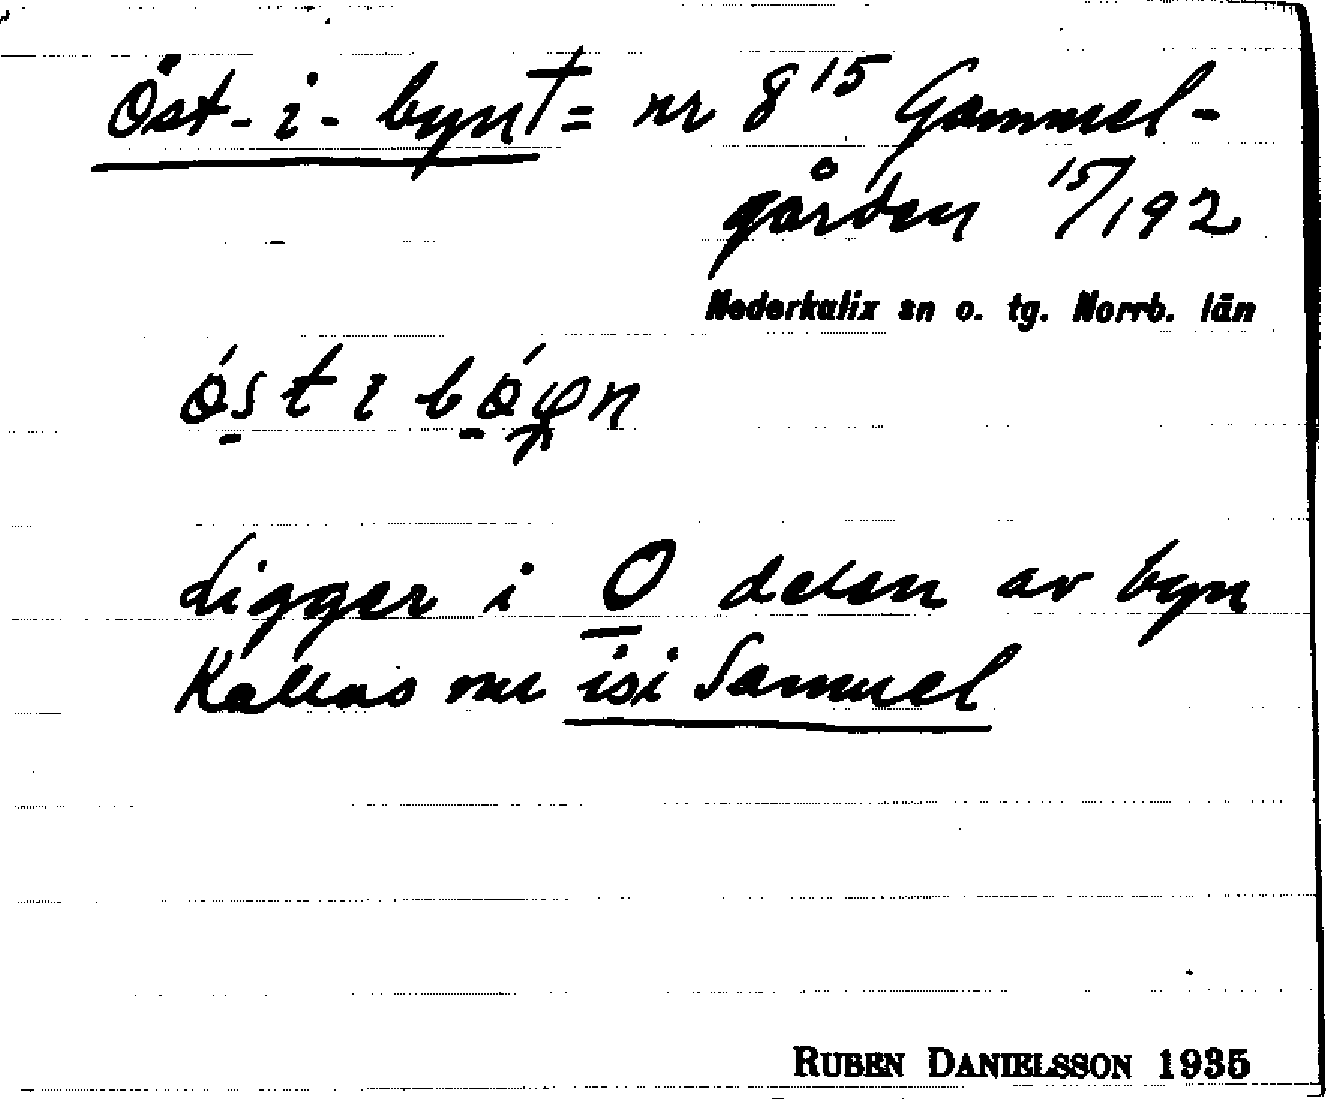 Öst-i-byn† = nr 8¹⁵ Gammel-
gården ¹⁵/192
Nederkalix sn o. tg. Norrb. län
öst i
Ligger i O delen av byn
Kallas nu isi Samuel
RUBEN DANIELSSON 1935